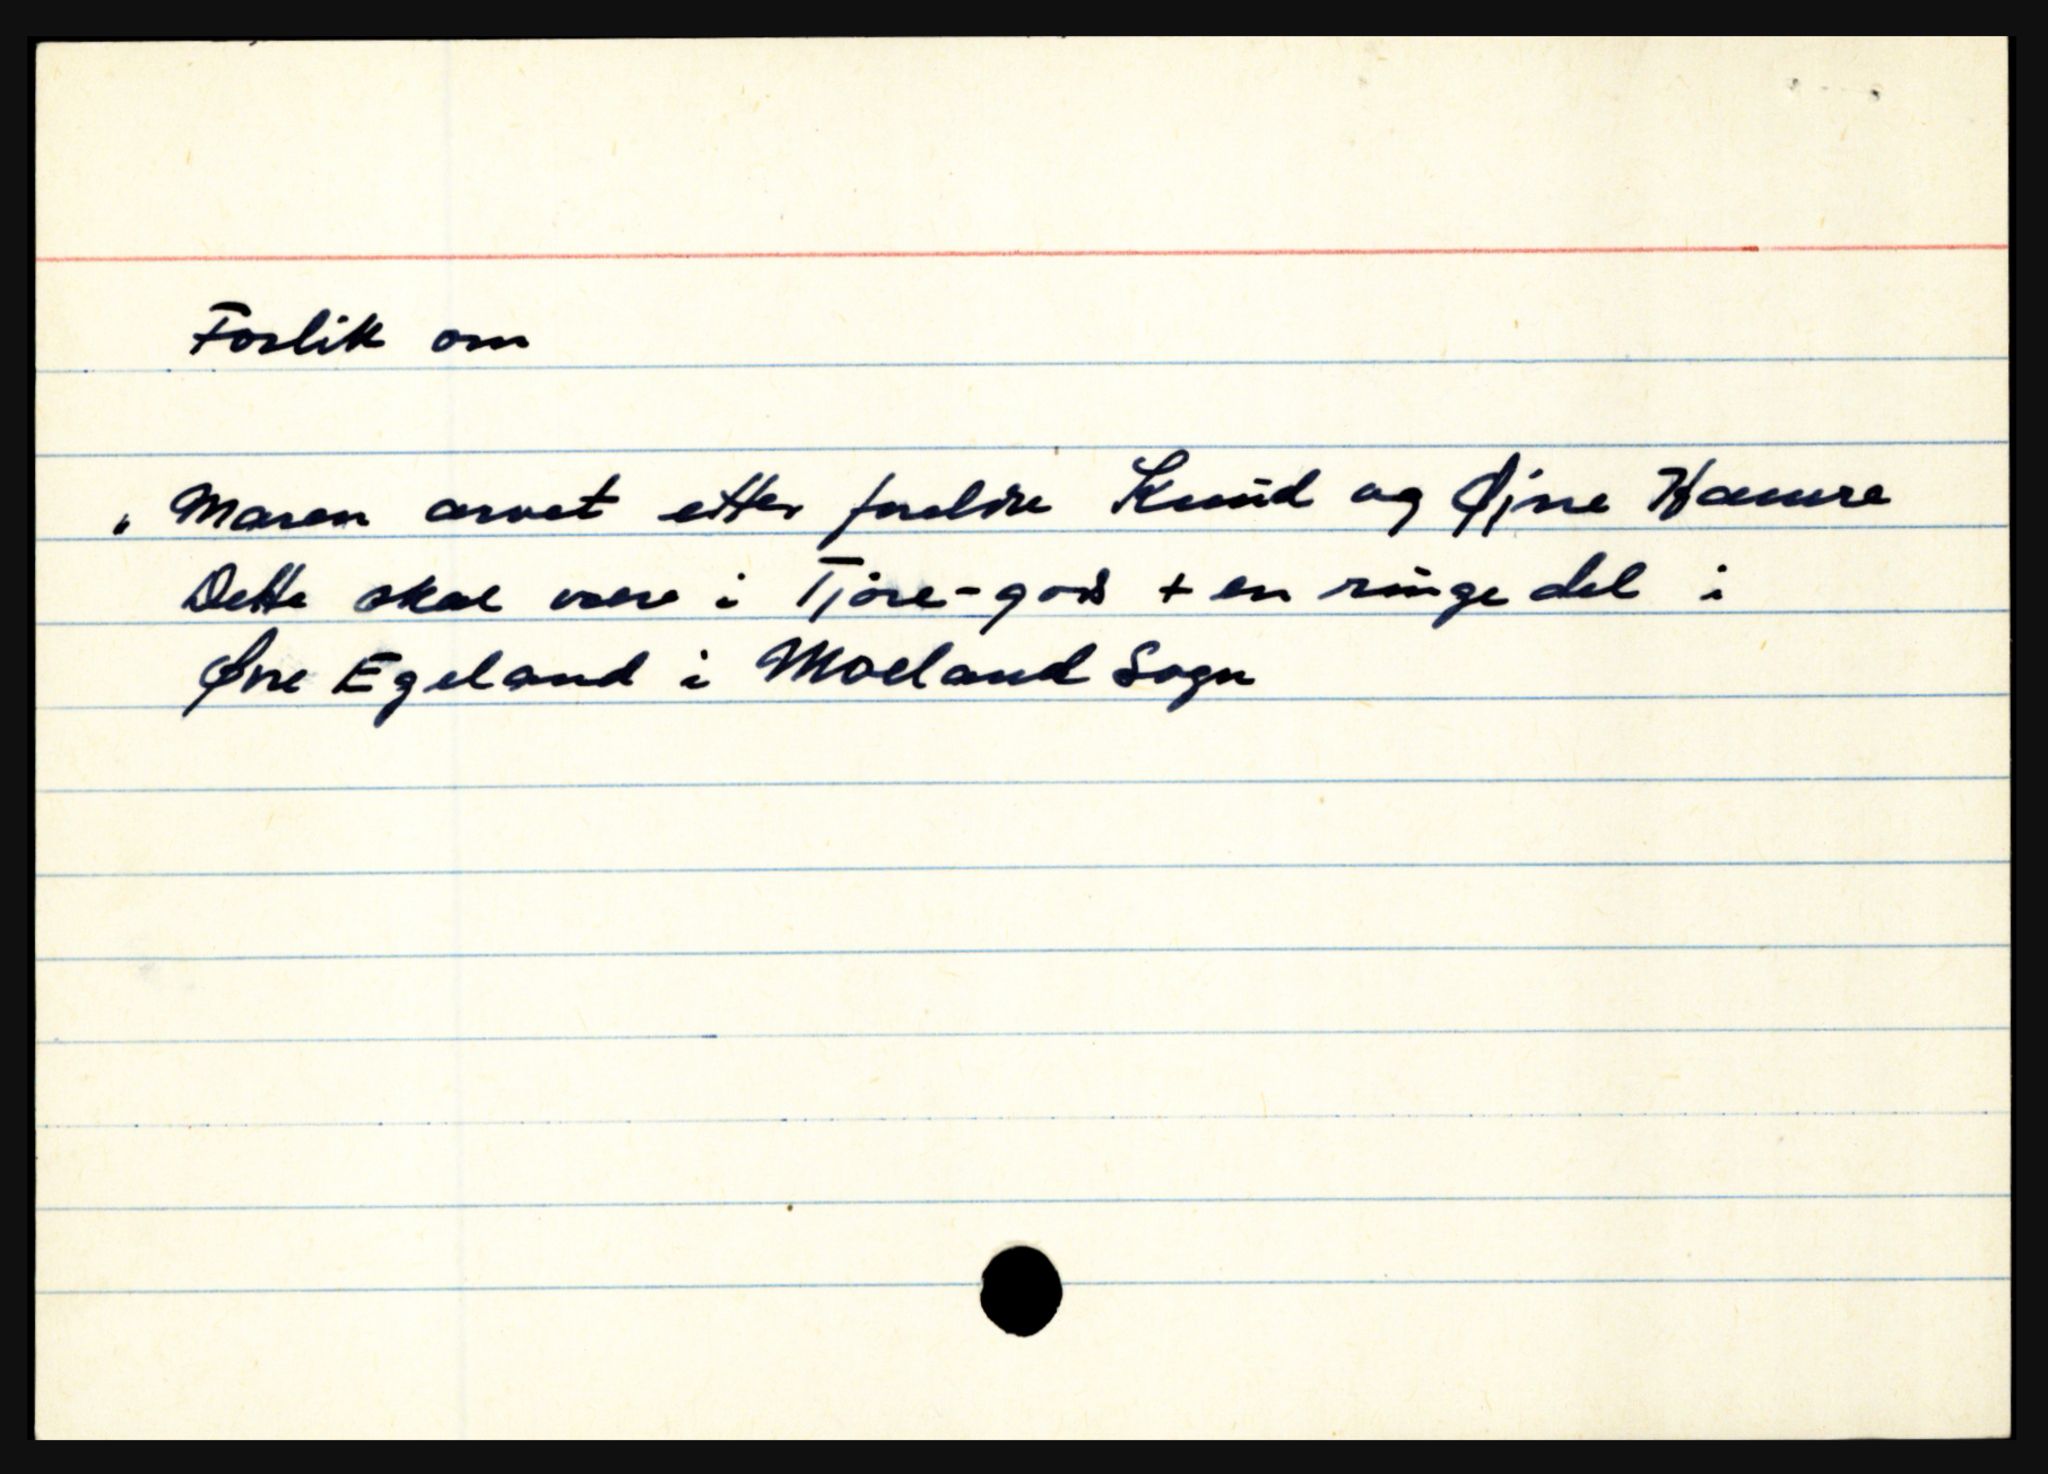 Forlik om
„ Maren arvet etter foreldre Knud og Øjne Hamre
Dette skal være i Tjøre-gods + en ringe del i
Øvre Egeland i Moeland Sogn